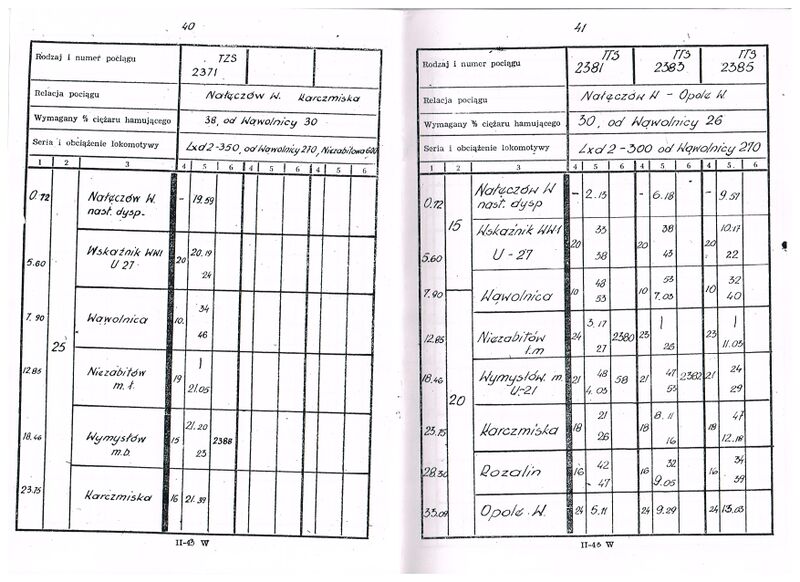 40
Rodzaj i numer pociągu TZS
2371
Relacja pociągu Nałęczów W. Karczmiska
Wymagany % ciężaru hamującego 38, od Wąwolnicy 30
Seria i obciążenie lokomotywy Lxd2-350, od Wąwolnicy 270, Niezabitowa 600
1 2 3 4 5 6 4 5 6 4 5 6
0.72 Nałęczów W. - 19.59
nast. dysp.
Wskaźnik WW1 20.19
5.60 U 27 20 24
34
7.90 Wąwolnica 10.
46
25
12.85 Niezabitów |
m. ł. 19 21.05
21.20
18.46 Wymysłów 15 2388
m.b. 23
23.75 Karczmiska 16 21.39
II-45 W
41
Rodzaj i numer pociągu TTS TTS TTS
2381 2383 2385
Relacja pociągu Nałęczów W - Opole W.
Wymagany % ciężaru hamującego 30, od Wąwolnicy 26
Seria i obciążenie lokomotywy Lxd2-300 od Wąwolnicy 270
1 2 3 4 5 6 4 5. 6 4 5. 6
0.72 Nałęczów W - 2.13 - 6.18 - 9.51
nast. dysp
15
Wskaźnik WW1 33 38 10.17
20 20 20
5.60 U-27 38 43 22
48 53 32
7.90 Wąwolnica 10 53 10 7.03 10 40
3.17 | |
12.85 Niezabitów 24 2380 23 23
t.m 27 26 11.03
18.46 Wymysłów. m. 21 48 58 21 47 2382 21 24
U-21 4.03 53 29
20
21 8.11 47
23.75 Karczmiska 18 18 18
26 16 12.18
42 32 34
28.30 Rozalin 16 16 16
47 9.05 39
33.09 Opole W. 24 5.11 24 9.29 24 13.03
II-45 W